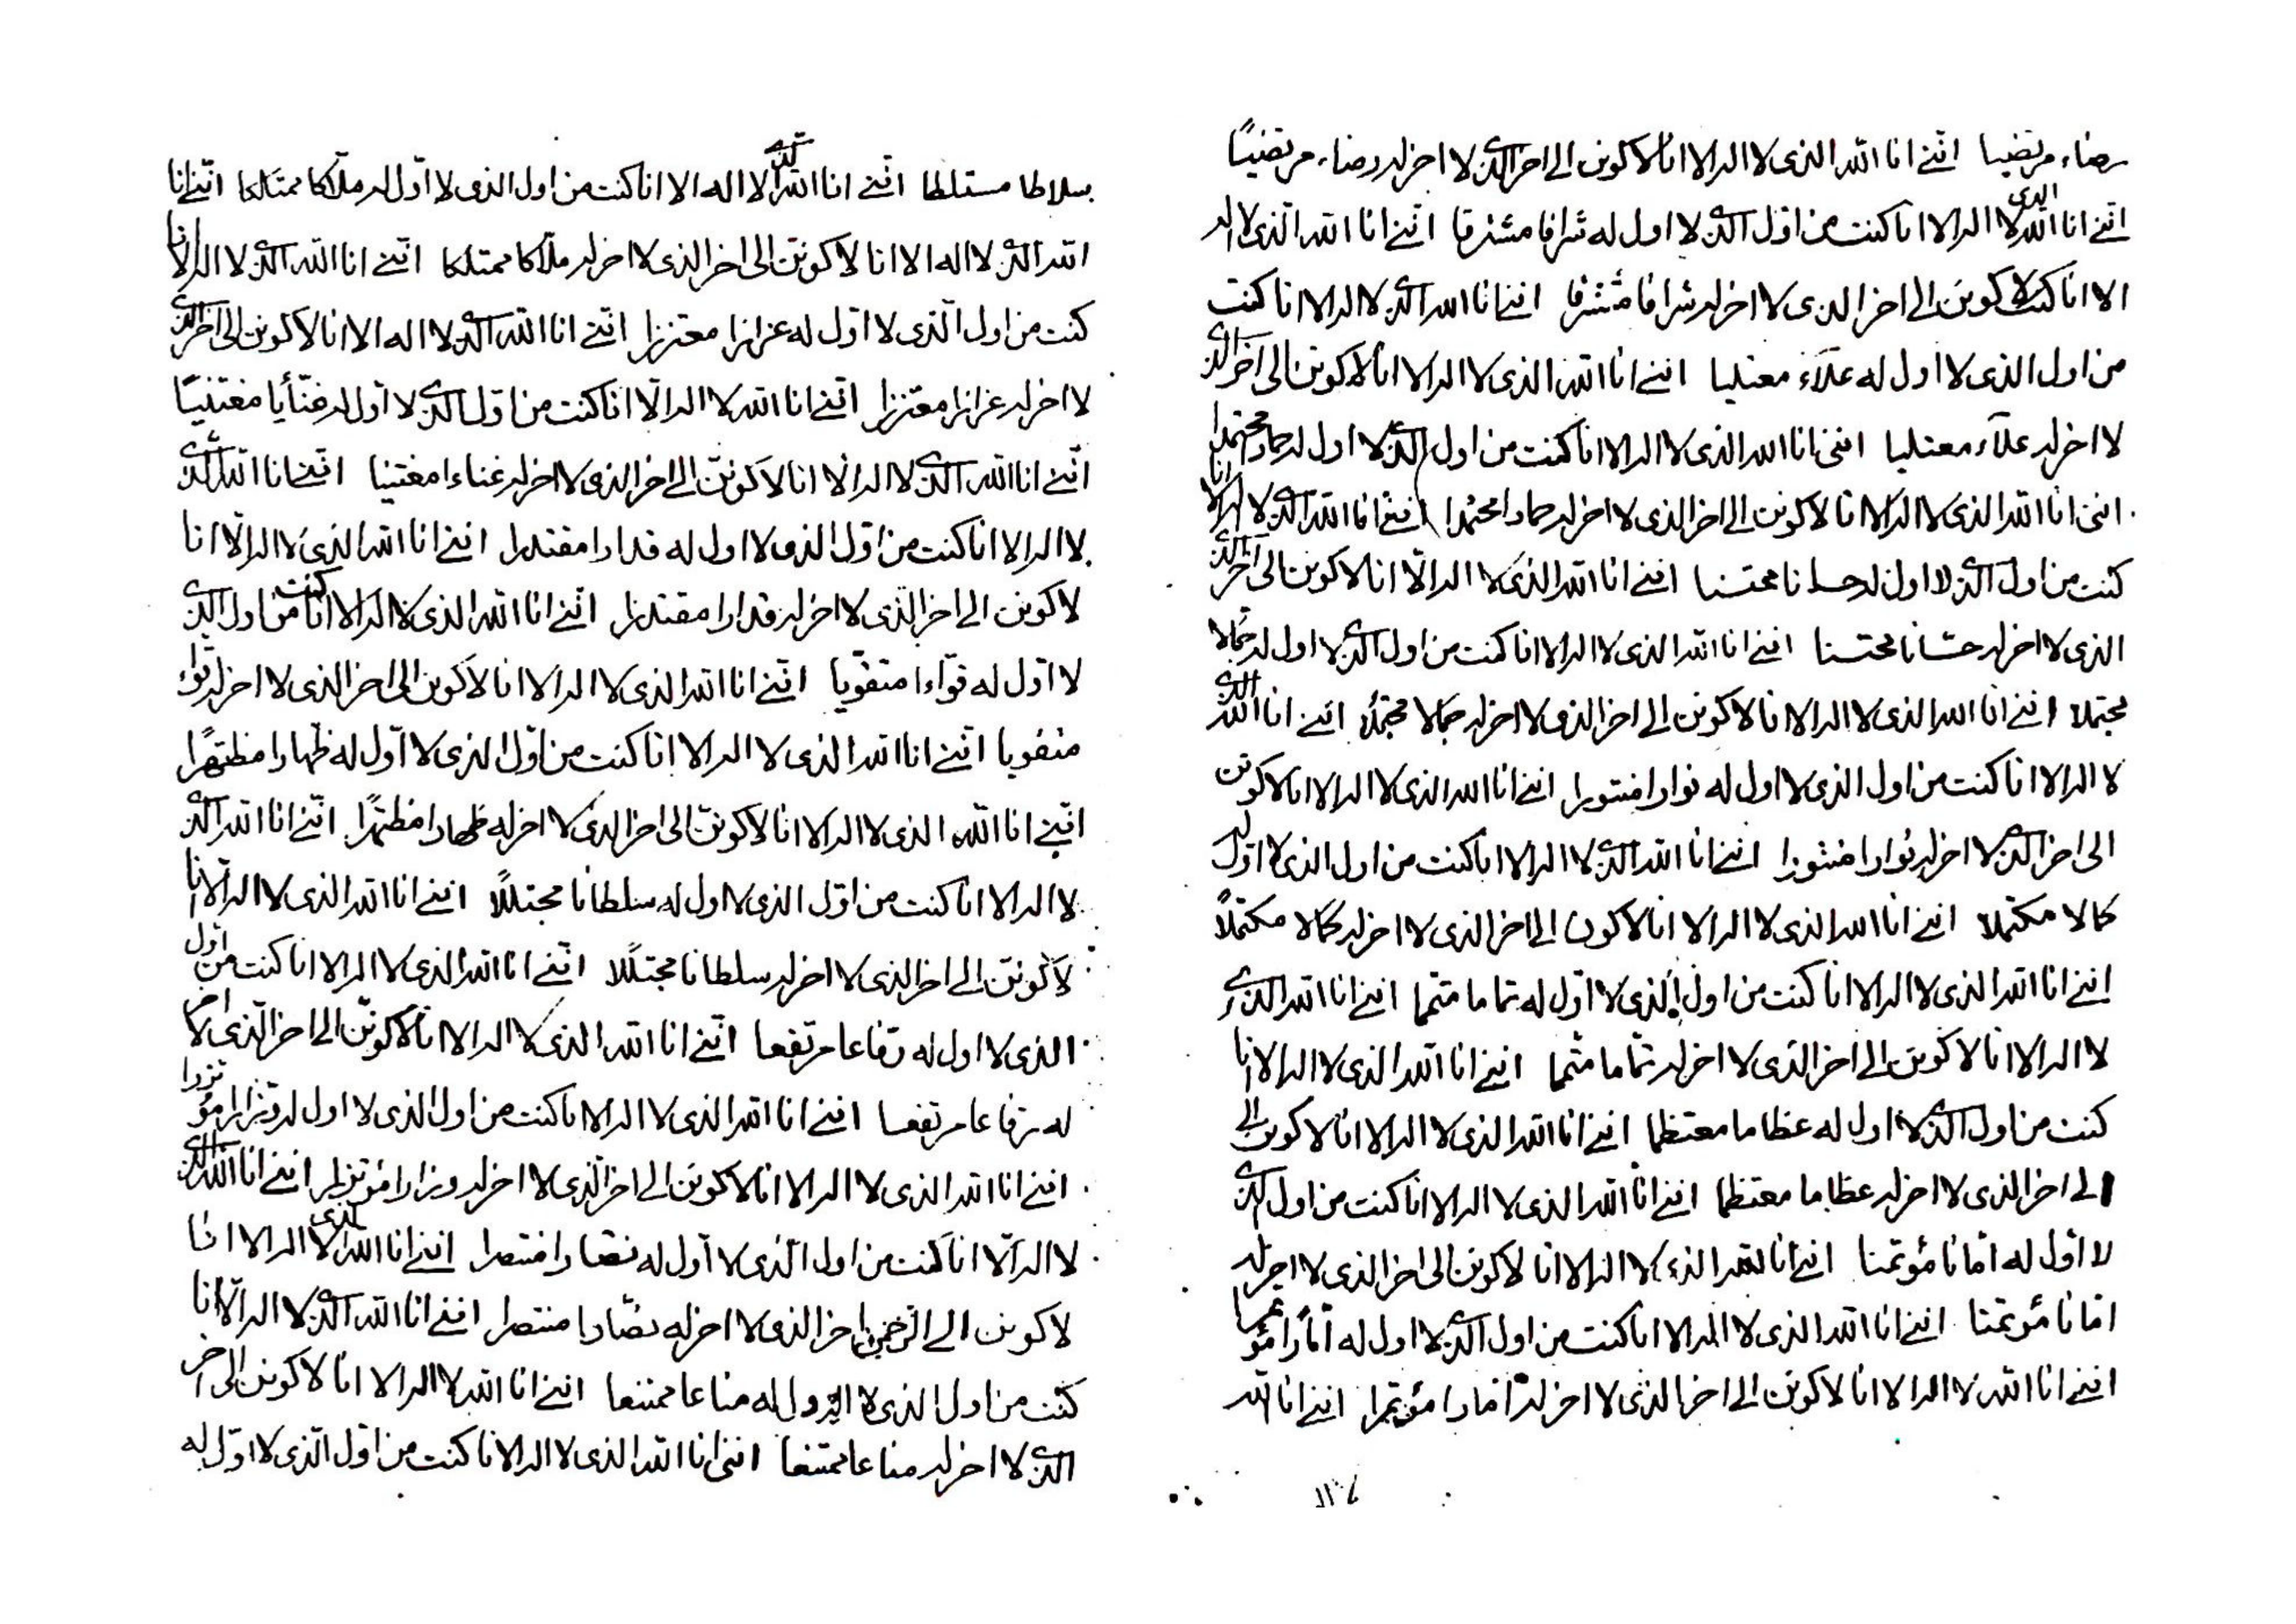 رضاء مرتضيا اننى انا الله الذى لا اله الا انا لاكونن الى اخر الذى لا اخر له رضاء مرتضيًا
اننى انا الله الذى لا اله الا انا كنت من اوّل الذى لا اول له شرافا مشترفا اننى انا الله الّذى لا اله
الا انا لاكونن الى اخر الذى لا اخر له شرافا مشترفا اننى انا الله الذى لا اله الا انا كنت
من اول الذى لا اول له علاّء معتليا اننى انا الله الذى لا اله الا انا لاكونن الى اخر الذى
لا اخر له علاّء معتليا اننى انا الله الذى لا اله الا انا كنت من اول الذى لا اول له حمادا محتمدا
اننى انا الله الذى لا اله الا انا لاكونن الى اخر الذى لا اخر له حمادا محتمدا اننى انا الله الذى لا اله الا انا
كنت من اول الذى لا اول له حسانا محتسنا اننى انا الله الذى لا اله الّا انا لاكونن الى اخر الذى
الذى لا اخر له حسّانا محتسنا اننى انا الله الذى لا اله الا انا كنت من اول الذى لا اول له جمالا
مجتملا اننى انا الله الذى لا اله الا انا لاكونن الى اخر الذى لا اخر له جمالا مجتملًا اننى انا الله الذى
لا اله الا انا كنت من اول الذى لا اول له نوارا منتورا اننى انا الله الذى لا اله الا انا لاكونن
الى اخر الذى لا اخر له نوارا منتورا اننى انا الله الذى لا اله الا انا كنت من اول الذى لا اوّل له
كمالا مكتملا اننى انا الله الذى لا اله الا انا لاكونن الى اخر الذى لا اخر له كمالا مكتملًا
اننى انا الله الذى لا اله الا انا كنت من اول الذى لا اوّل له تماما متمما اننى انا الله الذى
لا اله الا انا لاكونن الى اخر الّذى لا اخر له تمّاما متمما اننى انا الله الذى لا اله الا انا
كنت من اول الذى لا اول له عظاما معتظما اننى انا الله الذى لا اله الا انا لاكونن الى
الى اخر الذى لا اخر له عظاما معتظما اننى انا الله الذى لا اله الا انا كنت من اول الذى
لا اوّل له امّانا مؤتمنا اننى انا الله الذى لا اله الا انا لاكونن الى اخر الذى لا اخر له
امّانا مؤتمنا اننى انا الله الذى لا اله الا انا كنت من اول الذى لا اول له امّارا مؤتمرا
اننى انا الله لا اله الا انا لاكونن الى اخر الذى لا اخر له امّارا مؤتمرا اننى انا الله
سلاطا مستلطا اننى انا الله الذى لا اله الا انا كنت من اول الذى لا اوّل له ملّاكا ممتلكا اننى انا
الله الذى لا اله الا انا لاكونن الى اخر الذى لا اخر له ملّاكا ممتلكا اننى انا الله الذى لا اله الا انا
كنت من اول الّذى لا اوّل له عزازا معتززا اننى انا الله الذى لا اله الا انا لاكونن الى اخر الذى
لا اخر له عزازا معتززا اننى انا الله لا اله الّا انا كنت من اوّل الذى لا اوّل له غنّأيا مغتنيًا
اننى انا الله الذى لا اله الا انا لاكوننّ الى اخر الذى لا اخر له غناءا مغتنيا اننى انا الله الذى
لا اله الا انا كنت من اوّل الذى لا اول له قدارا مقتدرا اننى انا الله الذى لا اله الّا انا
لاكونن الى اخر الّذى لا اخر له قدارا مقتدرا اننى انا الله الذى لا اله الا انا كنت من اول الذى
لا اوّل له قوّاءا متقوّيا اننى انا الله الذى لا اله الا انا لاكونن الى اخر الذى لا اخر له قوّاء
متقويا اننى انا الله الذى لا اله الا انا كنت من اوّل الذى لا اوّل له ظهارا مظتهرًا
اننى انا الله الذى لا اله الا انا لاكوننّ الى اخر الذى لا اخر له ظهارا مظتهرًا اننى انا الله الذى
لا اله الا انا كنت من اوّل الذى لا اول له سلطانا مجتللًا اننى انا الله الذى لا اله الّا انا
لاكوننّ الى اخر الذى لا اخر له سلطانا مجتللًا اننى انا الله الذى لا اله الا انا كنت من اول
الذى لا اول له رفاعا مرتفعا اننى انا الله الذى لا اله الا انا لاكوننّ الى اخر الّذى لا اخر
له رفاعا مرتفعا اننى انا الله الذى لا اله الا انا كنت من اول الذى لا اول له وزارا مؤتزرا
اننى انا الله الذى لا اله الا انا لاكونن الى اخر الّذى لا اخر له وزارا مؤتزرا اننى انا الله الذى
لا اله الّا انا كنت من اول الّذى لا اوّل له نصارا منتصرا اننى انا الله الذى لا اله الا انا
لاكونن الى اخر الذى لا اخر له نصّارا منتصرا اننى انا الله الذى لا اله الّا انا
كنت من اول الذى لا اول له مناعا ممتنعا اننى انا الله لا اله الا انا لاكونن الى اخر
الذى لا اخر له مناعا ممتنعا اننى انا الله الذى لا اله الا انا كنت من اوّل الّذى لا اوّل له